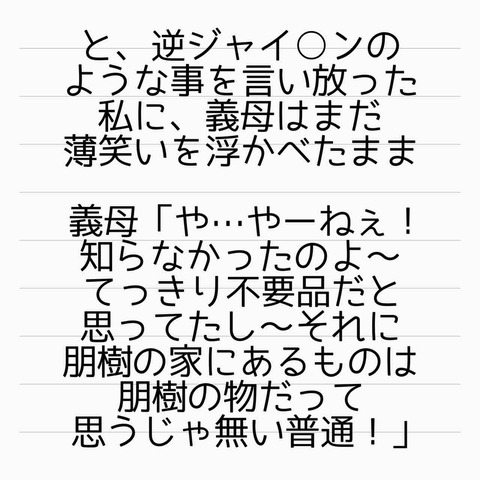 と、逆ジャイ○ンの
ような事を言い放った
私に、義母はまだ
薄笑いを浮かべたまま
義母「や…やーねぇ！
知らなかったのよ〜
てっきり不要品だと
思ってたし〜それに
朋樹の家にあるものは
朋樹の物だって
思うじゃ無い普通！」